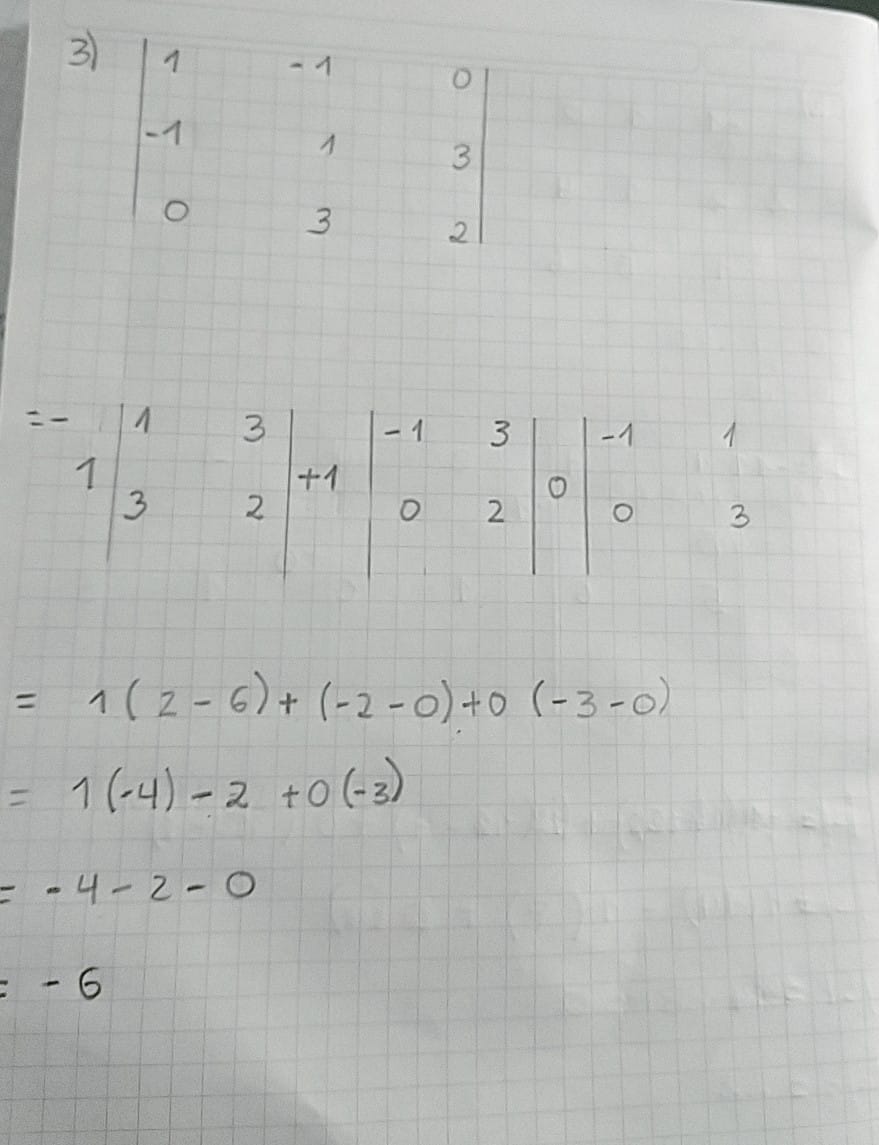 3) | 1 -1 0 |
| -1 1 3 |
| 0 3 2 |
=- | 1 3 | | -1 3 | | -1 1
1 | 3 2 | +1 | 0 2 | 0 | 0 3
= 1(2-6)+(-2-0)+0(-3-0)
= 1(-4)-2+0(-3)
= -4-2-0
= -6